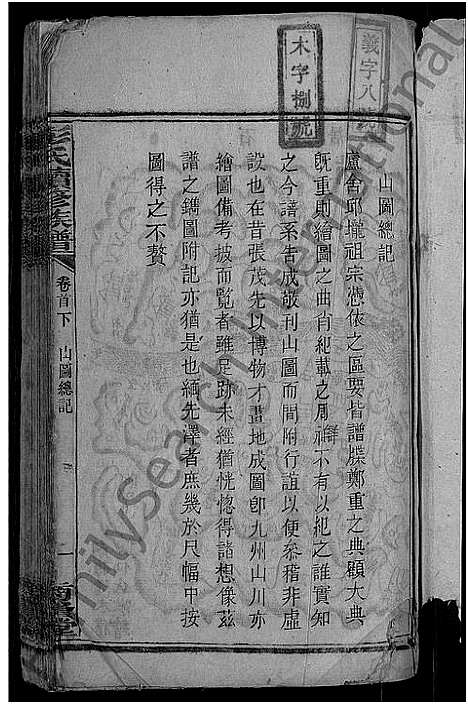 義字八
木字捌號
山圖總記
廬舍邱壠祖宗憑依之區要皆譜牒鄭重之典顧大典
既重則繪圖之曲肖紀載之周詳不有以紀之誰實知
之今譜系告成敬刊山圖而間附行誼以便叅稽非虛
設也在昔張茂先以博物才畫地成圖卽九州山川亦
繪圖備考披而覧者雖足跡未經猶恍惚得諸想像茲
譜之鐫圖附記亦猶是也緬先澤者庶幾於尺幅中按
圖得之不贅
彭氏續修族譜
卷首下
山圖總記
一
FamilySearch International